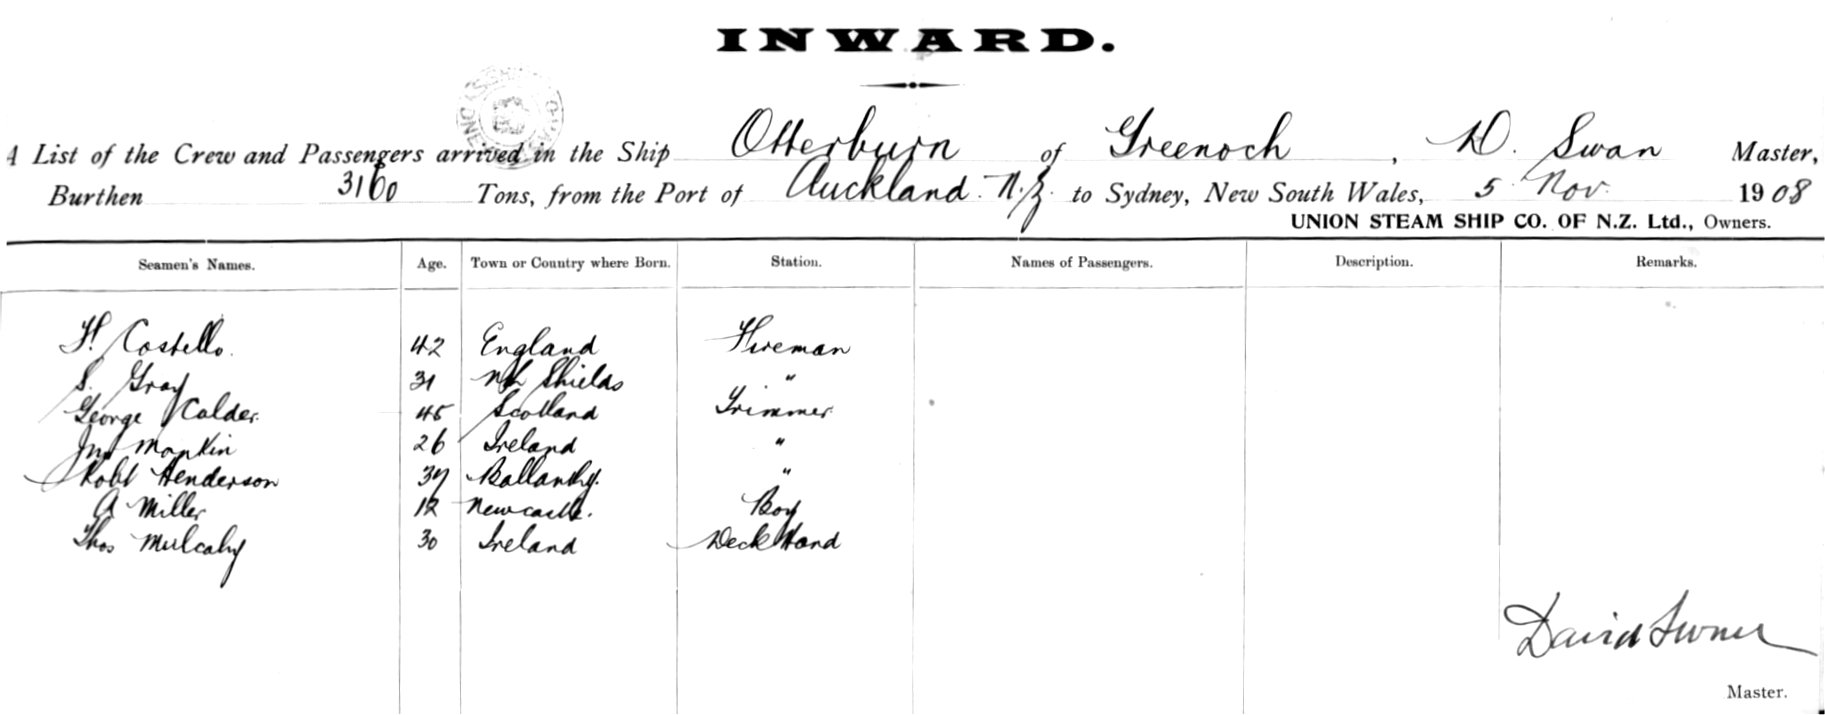 INWARD.
A List of the Crew and Passengers arrived in the Ship Otterburn of Greenock, D. Swan Master,
Burthen 3160 Tons, from the Port of Auckland N.Z. to Sydney, New South Wales, 5 Nov. 1908
UNION STEAM SHIP CO. OF N.Z. Ltd., Owners.
Seamen's Names. Age. Town or Country where Born. Station. Names of Passengers. Description. Remarks.
H. Costello. 42 England Fireman
S. Gray 31 Nth Shields "
George Calder. 45 Scotland Trimmer
Jno 26 Ireland "
Robt Henderson "
A Miller 12 Newcastle. Boy
Thos Mulcahy 30 Ireland Deck Hand
David
Master.